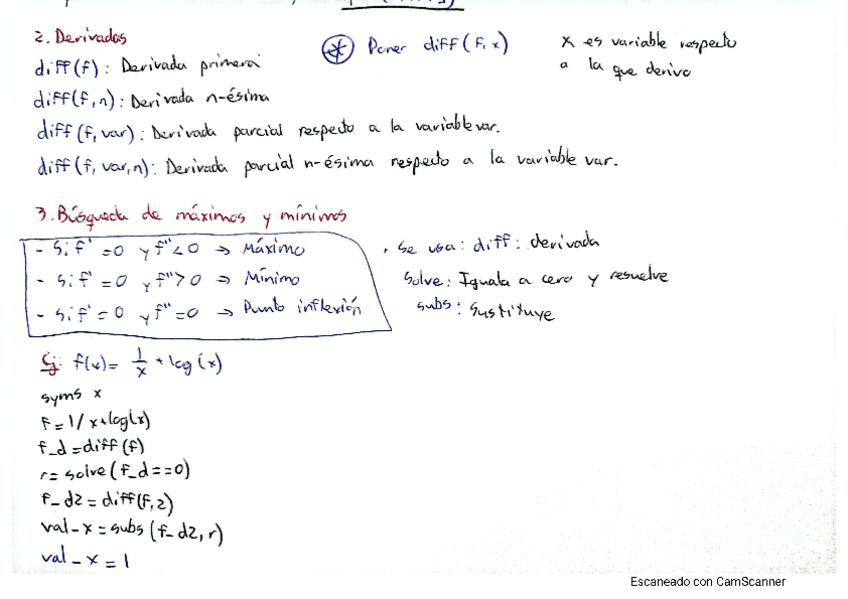 2. Derivadas
⊛ Poner diff(f,x)
x es variable respecto
a la que derivo
diff(f): Derivada primera
diff(f,n): Derivada n-ésima
diff(f,var): Derivada parcial respecto a la variable var.
diff(f,var,n): Derivada parcial n-ésima respecto a la variable var.
3. Búsqueda de máximos y mínimos
- Si f' =0 y f''<0 → Máximo
- Si f' =0 y f''>0 → Mínimo
- Si f' =0 y f''=0 → Punto inflexión
· Se usa: diff: derivada
solve: Iguala a cero y resuelve
subs: Sustituye
Ej: f(x)= 1/x + log(x)
syms x
f=1/x+log(x)
f_d=diff(f)
r=solve(f_d==0)
f_d2=diff(f,2)
val_x=subs(f_d2,r)
val_x=1
Escaneado con CamScanner